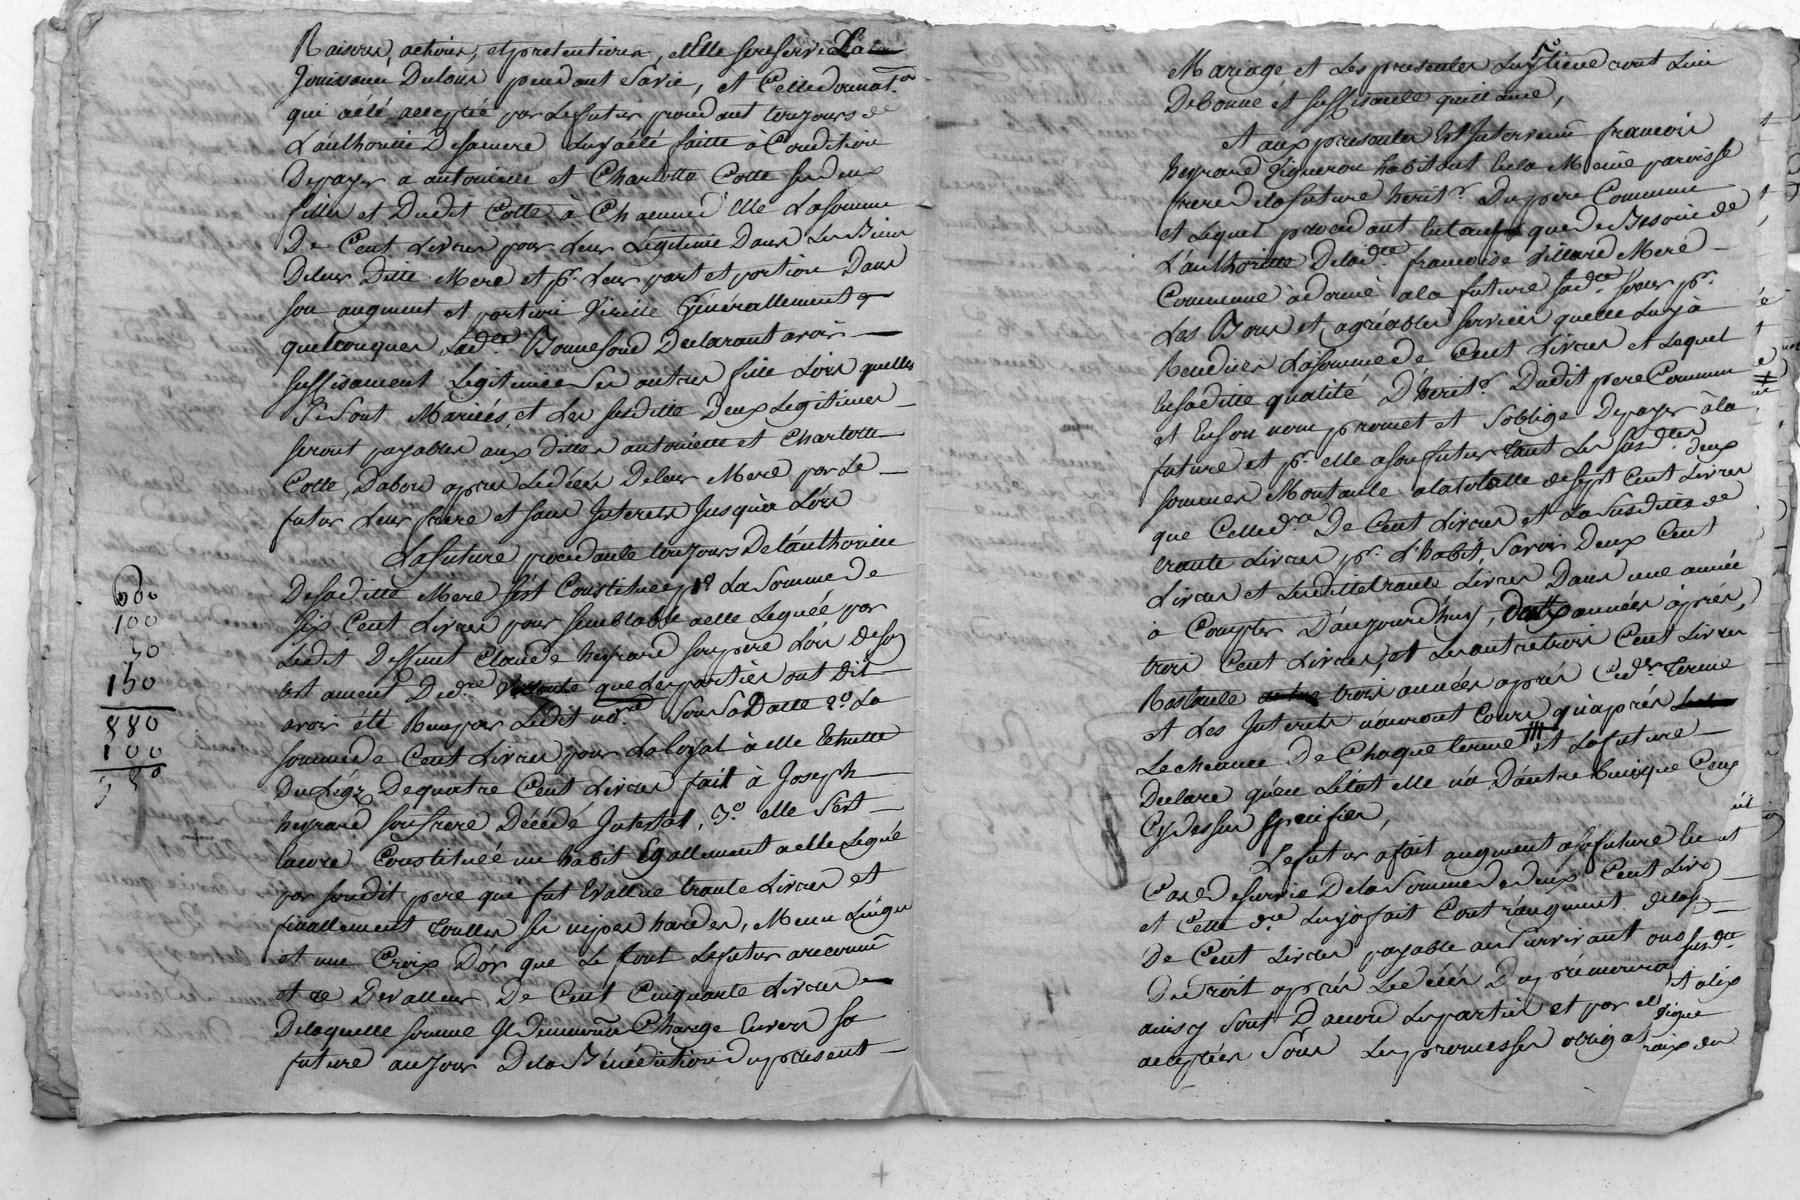 Raisons, actions, et pretentions, Elle sereserve La
Jouissance Dutout pendant Savie, et Cette donnat.on
qui aété acceptée par Lefutur procédant toujours de
L'authorité Desamere Luy a été faitte à Condition
Depayer a antoinette et Charlotte Cotte ses deux
filles et Dudit Cotte à Chacune d'Elle La somme
De Cent Livres pour Leur Légitime Dans Les Biens
Deleur Ditte Mere et pr. Leur part et portion Dans
son augment et portion Virille Générallement
quelconques Lad.te Bonnefond Declarant avoir
suffisament Legitimée Ses autres fille Lors quelles
Se sont Mariées, et Les susditte Deux Legitimes
seront payables aux dittes antoinette et Charlotte
Cotte, Dabord apres Ledécés Deleur Mere par Le
futur Leur frere et sans Interets Jusqu'à Lors
La future procedante toujours Del'authoritté
Desaditte Mere s'est Constituée p.o La Somme de
six Cent Livres pour semblable aelle Leguée par
Ledit Deffunt Claude heyraud sonpere Lors deson
testament Du d.re que Les parties ont Dit
avoir été Reçu par Ledit no.re Sous Sa Datte 2.o La
somme de Cent Livres pour La Loyal à elle Echutte
Du Légs Dequatre Cent Livres fait à Joseph
heyraud son frere Décédé Intestat, 3.o elle S'est
Encore Constituée un habit Egallement aelle Legué
par sondit pere que fut Evallué trante Livres et
finallement touttes ses nipes hardes, Menu Linge
et une Croix D'or que Le font Lefutur areconnu
et de De valleur De Cent Cinquante Livres
Delaquelle somme Il Demeurera Chargé Envers sa
future au Jour Dela Bénédiction Duprésent
600
100
30
150
880
100
Mariage, et Les presentes Luy tiendront Lieu
De bonne et suffisante quittance,
et aux presentes Est Intervenu francois
heyraud Vigneron habitant En la Même paroisse
frere dela future herit.r Du pere Commun
et Lequel procedant En tant que de Besoin de
L'authoritté Delad.te francoise Villard Mere
Commune à donné a la future sad.te soeur pr.
Les Bons et agréables services quelle Luy à
Rendües La somme de Cent Livres et Lequel
En saditte qualité D'herit.r Dudit pere Commun
et En son nom promet et S'oblige Depayer à la
future et pr. elle a son futur tant Les susd.ttes deux
sommes Montante a la totalle de sept Cent Livres
que Celle De Cent Livres et La Susditte de
trante Livres pr. L'habit, Savoir Deux Cent
Livres et Lesdittes trante Livres Dans une année
à Compter D'aujourd'huy, deux années après,
trois Cent Livres, et Les autres trois Cent Livres
Restante trois années après Ced. dr. terme
et Les Interets n'auront Cours qu'après
Lechéance De Chaque terme et La future
Declare qu'en L'état elle n'a D'autre Biens que Ceux
Cy dessus spécifiés,
Lefutur a fait augment a safuture En et
Cas de survie De la Somme de deux Cent Livres
et Cette d.re Luy a fait Contr'augment
De Cent Livres payable au Survivant ou
Dedroit après Ledécés Du prémourant
ainsy Sont D'accord Les parties et par el
acceptées Sous Les promesses obligat